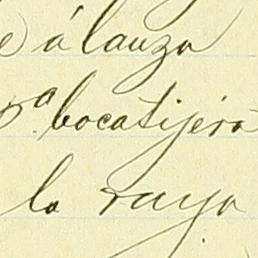 á lanza
bocatijera
la raya